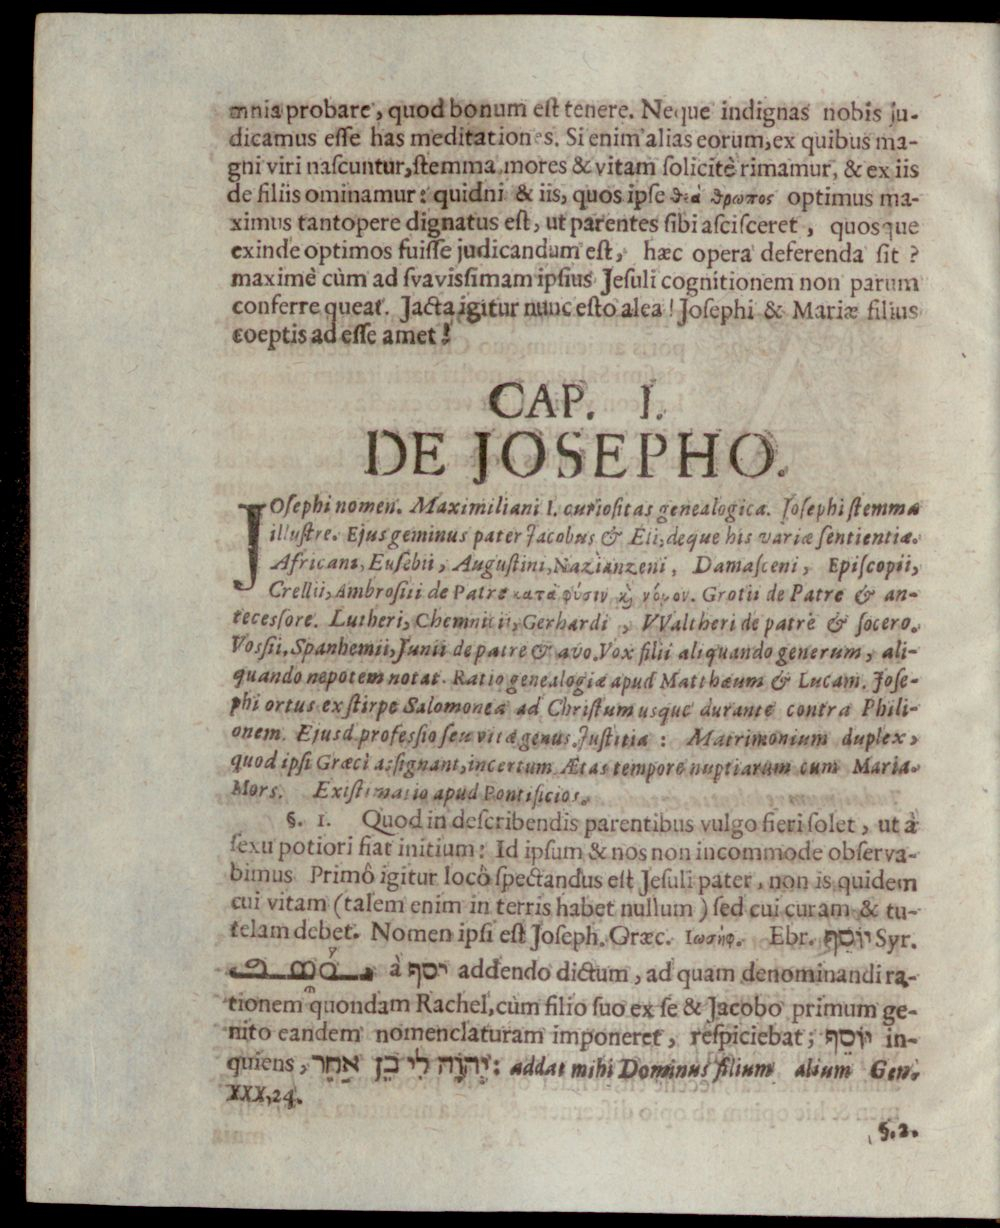 mnia probare, quod bonum est tenere. Neque indignas nobis ju-
dicamus esse has meditationes. Si enim alias eorum, ex quibus ma-
gni viri nascuntur, stemma, mores & vitam solicitè rimamur, & ex iis
de filiis ominamur: quidni & iis, quos ipse θεάνθρωπος optimus ma-
ximus tantopere dignatus est, ut parentes sibi ascisceret, quosque
exinde optimos fuisse judicandum est, hæc opera deferenda sit?
maximè cùm ad svavissimam ipsius Jesuli cognitionem non parum
conferre queat. Jacta igitur nunc esto alea! Josephi & Mariæ filius
coeptis ad esse amet!
CAP. I.
DE JOSEPHO.
JOsephi nomen. Maximiliani I. curiositas genealogica. Josephi stemma
illustre. Ejus geminus pater Jacobus & Eli, deque his variæ sententiæ.
Africani, Eusebii, Augustini, Nazianzeni, Damasceni, Episcopii,
Crellii, Ambrosiii de Patre κατὰ φύσιν ϗ νόμον. Grotii de Patre & an-
tecessore. Lutheri, Chemnitii, Gerhardi, VValtheri de patre & socero.
Vossii, Spanhemii, Junii de patre & avo. Vox filii aliquando generum, ali-
quando nepotem notat. Ratio genealogiæ apud Matthæum & Lucam. Jose-
phi ortus ex stirpe Salomonea ad Christum usque durante contra Phili-
onem. Ejusd professio seu vitæ genus. Justitia: Matrimonium duplex,
quod ipsi Græci assignant, incertum Ætas tempore nuptiarum cum Maria.
Mors. Existimatio apud Pontificios.
§. 1. Quod in describendis parentibus vulgo fieri solet, ut à
sexu potiori fiat initium: Id ipsum & nos non incommode observa-
bimus Primô igitur locô spectandus est Jesuli pater, non is quidem
cui vitam (talem enim in terris habet nullum) sed cui curam & tu-
telam debet. Nomen ipsi est Joseph. Græc. Ιωσήφ. Ebr. יוֹסֵף Syr.
à יסף addendo dictum, ad quam denominandi ra-
tionem quondam Rachel, cùm filio suo ex se & Jacobo primum ge-
nito eandem nomenclaturam imponeret, respiciebat; יוֹסֵף in-
quiens, יְהוָֹה לִי בֵּן אַחֵר: addat mihi Dominus filium alium Gen.
XXX, 24.
§. 2.